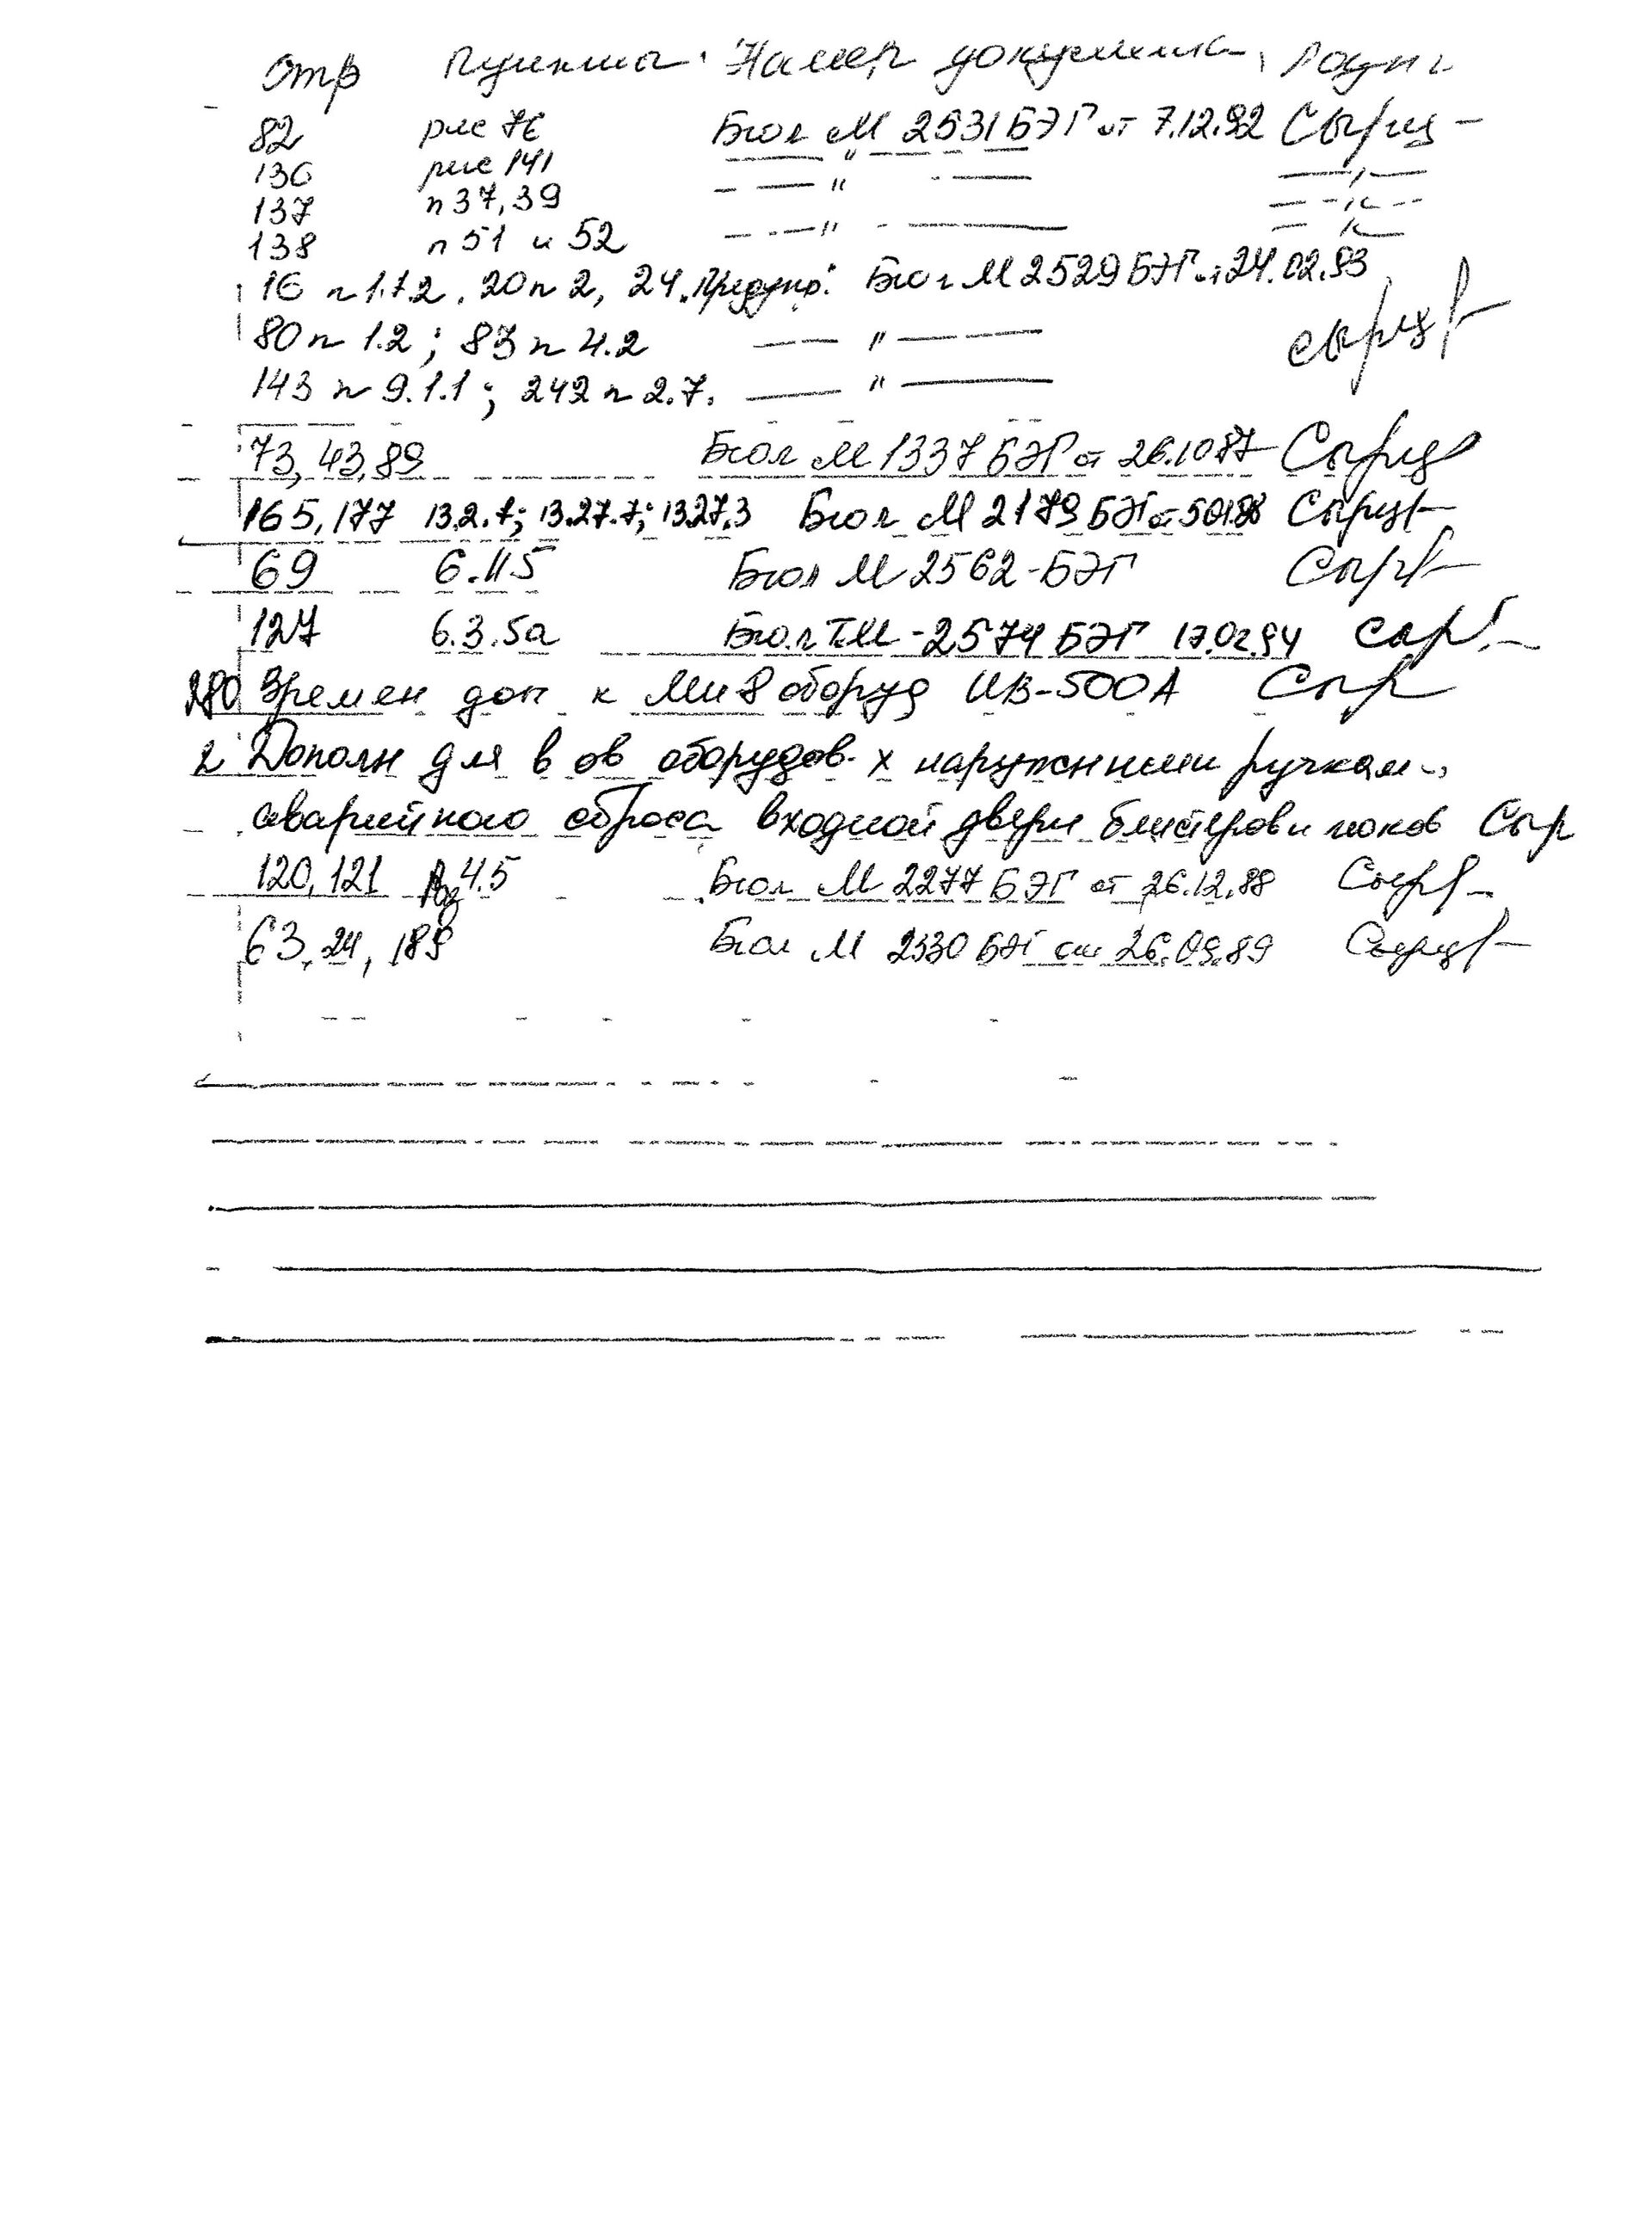 Стр Пункты. Номер документа, Роспись
82 рис 76 Бюл М 2531 БЭГ от 7.12.92
136 рис 141 — " —
137 п 37, 39 — " — — " —
138 п 51 и 52 — " — — " —
16 п 1.7.2, 20 п 2, 24. Предупр. Бюл М 2529 БЭГ от 24.02.93
80 п 1.2; 83 п 4.2 — " —
143 п 9.1.1; 242 п 2.7. — " —
73, 43, 89 Бюл М 1337 БЭГ от 26.10 87
165, 177 13.2.7; 13.27.7; 13.27.3 Бюл М 2179 БЭГ от 5.01.88
69 6.11.5 Бюл М 2562-БЭГ
127 6.3.5а Бюл ТМ-2574 БЭГ 17.02.94
280 Времен доп к Ми 8 оборуд ИВ-500А
2 Дополн для в ов оборудов-х наружными ручками
аварийного сброса входной двери блистеров и люков
120, 121 4.5 Бюл М 2277 БЭГ от 26.12.88
63, 24, 189 Бюл М 2330 БЭГ от 26.09.89